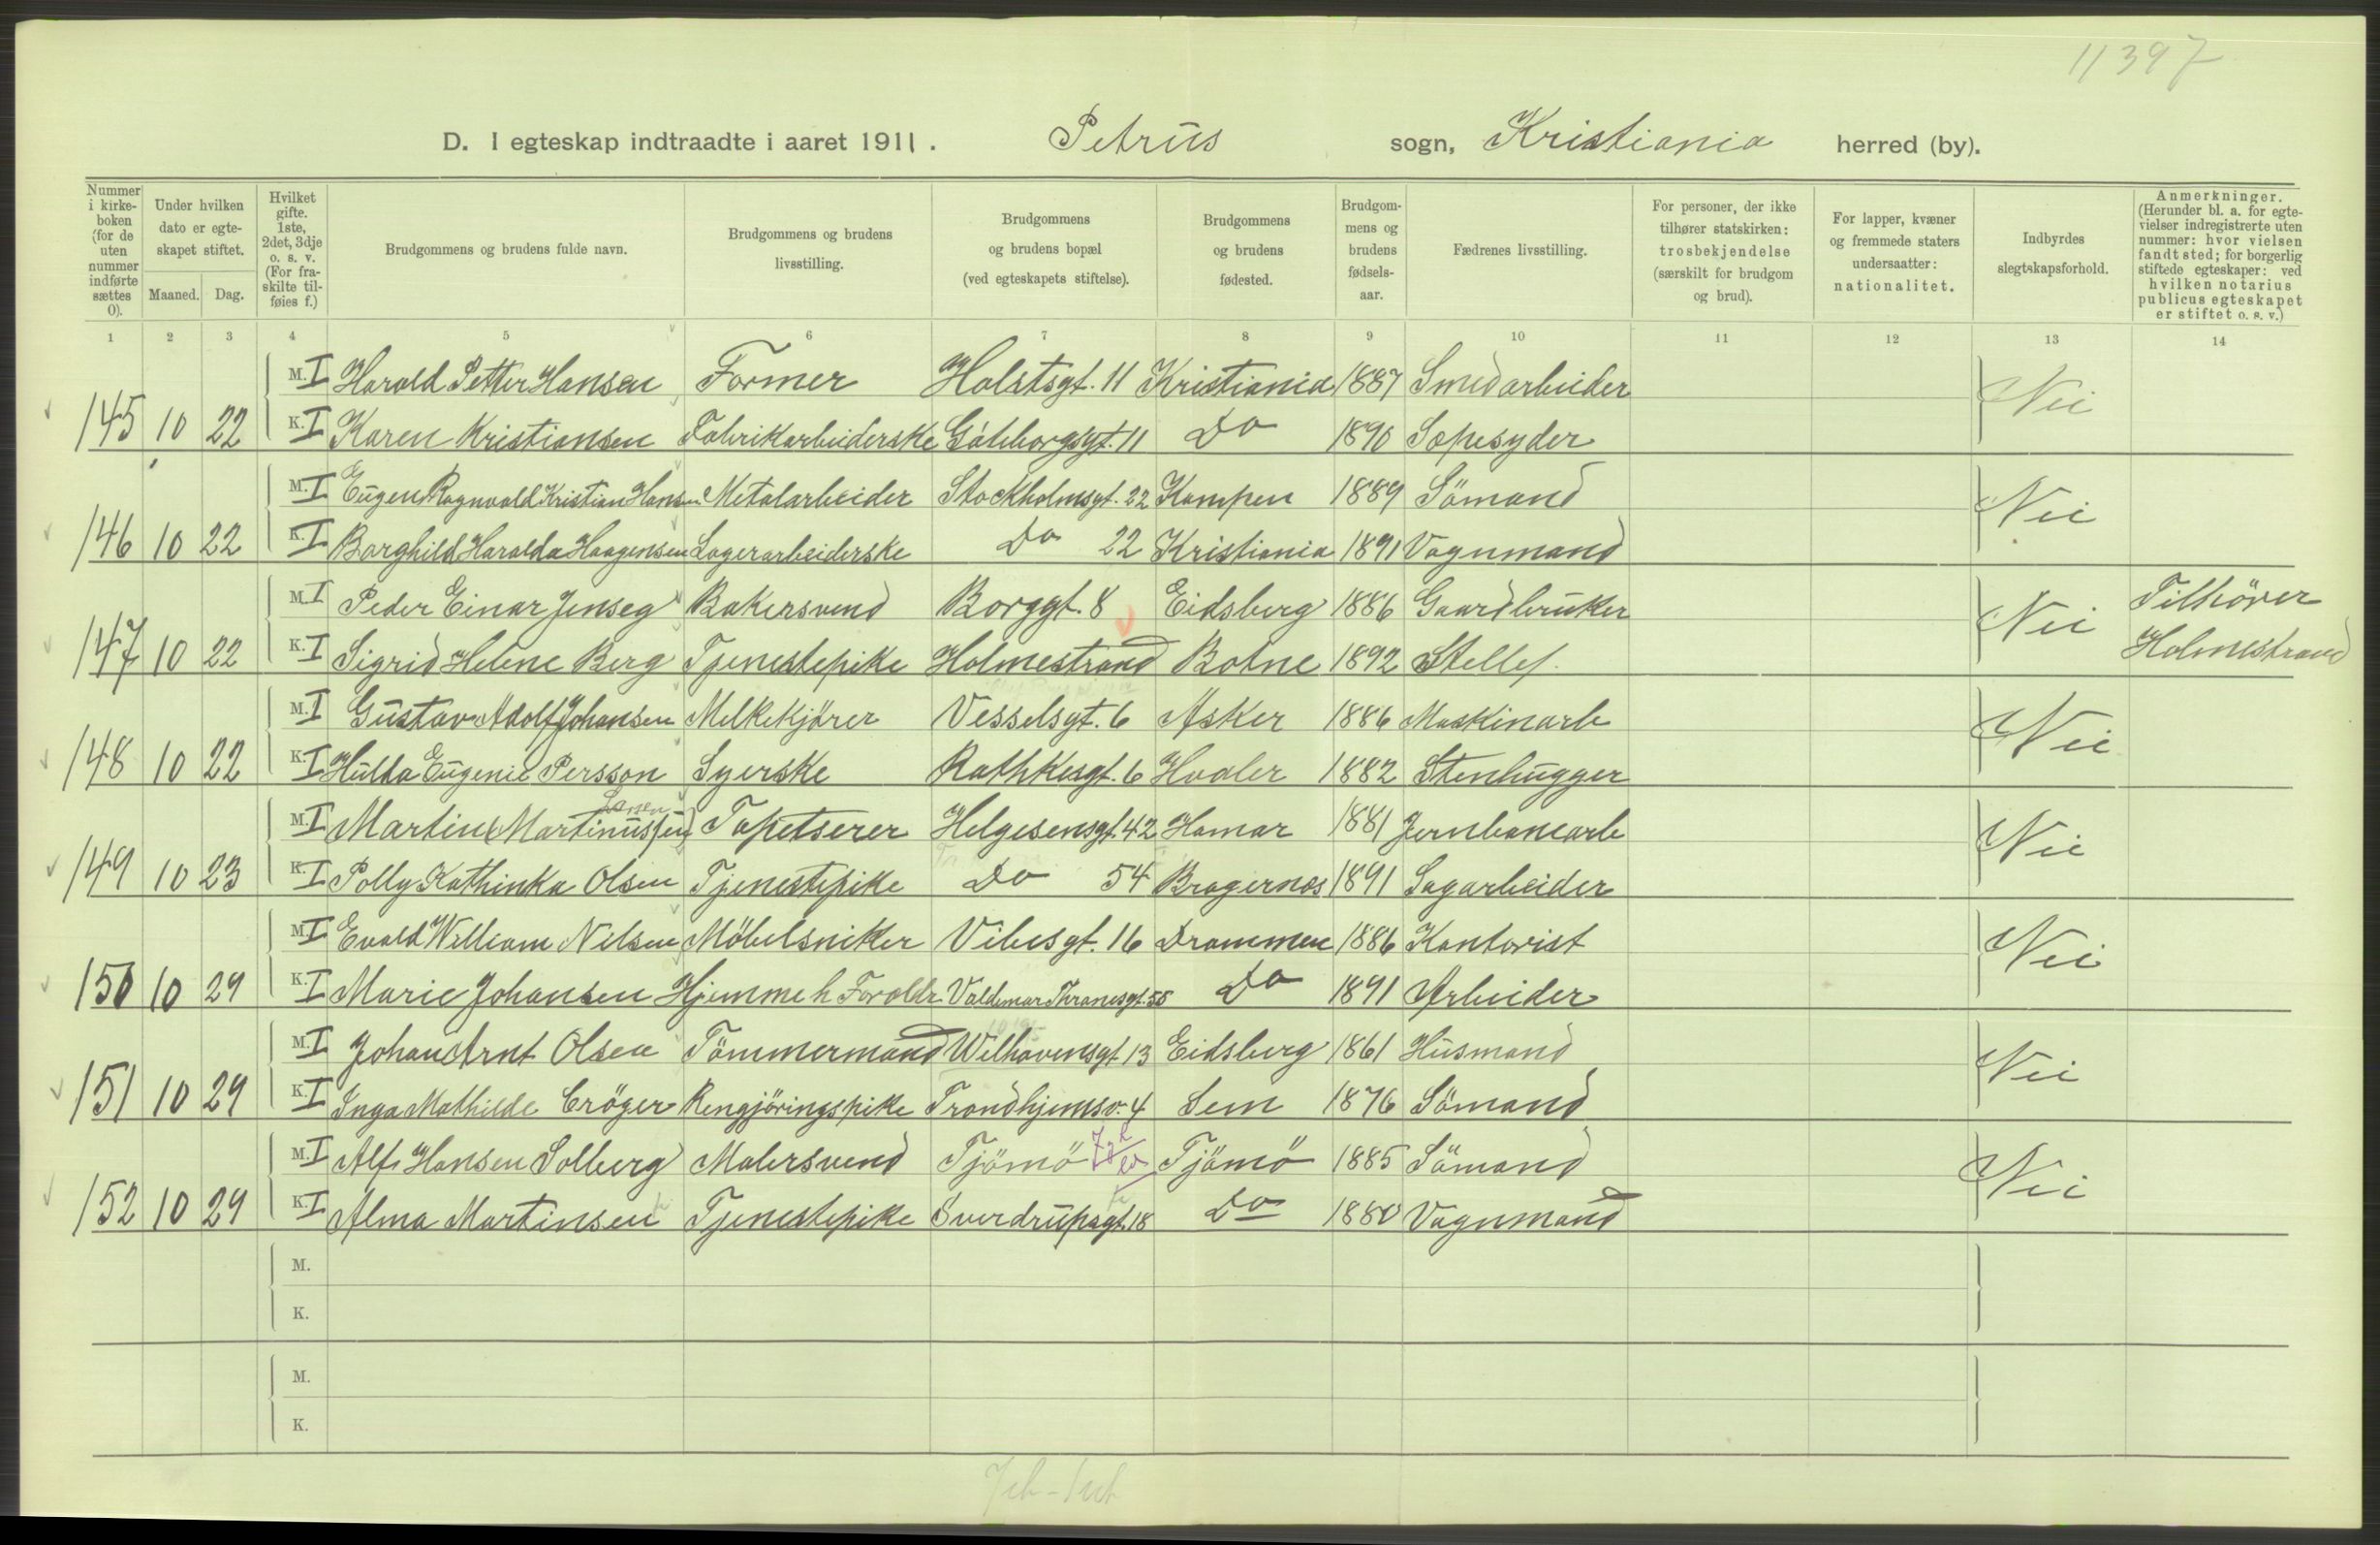 11397
D. I egteskap indtraadte i aaret 1911. Petrus sogn, Kristiania herred (by).
Nummer i kirkeboken (for de uten nummer indførte sættes 0).
Under hvilken dato er egteskapet stiftet.
Maaned. Dag.
Hvilket gifte. 1ste, 2det, 3dje o. s. v. (For fraskilte tilføies f.)
Brudgommens og brudens fulde navn.
Brudgommens og brudens livsstilling.
Brudgommens og brudens bopæl (ved egteskapets stiftelse).
Brudgommens og brudens fødested.
Brudgommens og brudens fødselsaar.
Fædrenes livsstilling.
For personer, der ikke tilhører statskirken: trosbekjendelse (særskilt for brudgom og brud).
For lapper, kvæner og fremmede staters undersaatter: nationalitet.
Indbyrdes slegtskapsforhold.
Anmerkninger. (Herunder bl. a. for egtevielser indregistrerte uten nummer: hvor vielsen fandt sted; for borgerlig stiftede egteskaper: ved hvilken notarius publicus egteskapet er stiftet o. s. v.)
1 2 3 4 5 6 7 8 9 10 11 12 13 14
M. I Harald Petter Hansen Former Holstsgt. 11 Kristiania 1887 Smedarbeider Nei
145 10 22 K. I Karen Kristiansen Fabrikarbeiderske Göteborgsgt. 11 Do 1890 Sæpesyder
M. I Eugen Ragnvald Kristian Hansen Metalarbeider Stockholmsgt. 22 Kampen 1889 Sömand Nei
146 10 22 K. I Borghild Haralda Haagensen Lagerarbeiderske Do 22 Kristiania 1891 Vognmand
M. I Peder Einar Jenseg Bakersvend Borggt. 8 Eidsberg 1886 Gaardbruker Nei Tilhörer
147 10 22 K. I Sigrid Helene Berg Tjenestepike Holmestrand Botne 1892 Stellf. Holmestrand
M. I Gustav Adolf Johansen Melkekjörer Vesselsgt. 6 Asker 1886 Maskinarb Nei
148 10 22 K. I Hulda Eugenie Persson Syerske Rathkesgt. 6 Hvaler 1882 Stenhugger
M. I Martin (Martinussen) Larsen Tapetserer Helgesensgt. 42 Hamar 1881 Jernbanearb Nei
149 10 23 K. I Polly Kathinka Olsen Tjenestepike Do 54 Bragernes 1891 Sagarbeider
M. I Evald William Nilsen Möbelsniker Vibesgt. 16 Drammen 1886 Kontorist Nei
150 10 29 K. I Marie Johansen Hjemme h Foraldr. Valdemar Thranesgt. 55 Do 1891 Arbeider
M. I Johan Arnt Olsen Tömmermand Welhavensgt 13 Eidsberg 1861 Husmand Nei
151 10 29 K. I Inga Mathilde Cröger Rengjöringspike Trondhjemsv. 4 Sem 1876 Sömand
M. I Alf Hansen Solberg Malersvend Tjömö Tjömö 1885 Sömand Nei
152 10 29 K. I Alma Martinsen Tjenestepike Sverdrupsgt. 18 Do 1880 Vognmand
M.
K.
M.
K.